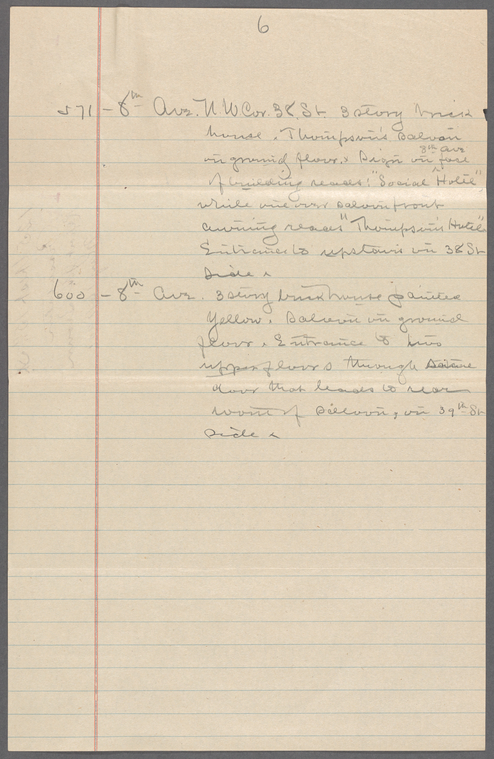 6
571 - 8th Ave. N W Cor 38 St 3 story brick
house. Thompson's Saloon
on ground floor. Sign on 8th Ave face
of building reads: "Social Hotel",
while one over saloon front
awning reads "Thompson's Hotel"
Entrance to upstairs on 38 St
side.
600 - 8th Ave. 3 story brick house painted
Yellow. Saloon on ground
floor. Entrance to two
upper floors through same
door that leads to rear
room of saloon, on 39th St
side.